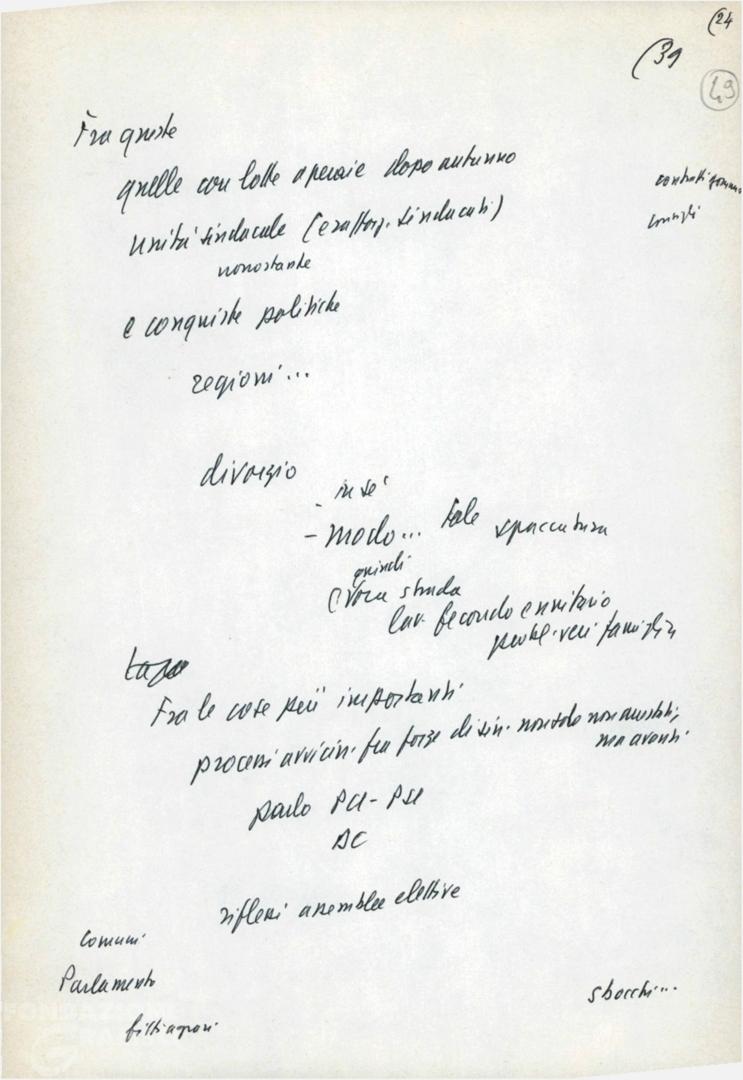 (24
(39
49
Fra queste
quelle con lotte operaie dopo autunno
contratti
consigli
unità sindacale (e rafforz. sindacati)
nonostante
e conquiste politiche
regioni...
divorzio
- in sé
- modo... tale spaccatura
quindi
strada
lav. fecondo e unitario
probl. veri famiglia
Fra le cose più importanti
processi avvicin. fra forze di sin. non solo non arrestati,
ma avanti
parlo PCI - PSI
DC
riflessi assemblee elettive
Comuni
Parlamento
sbocchi...
fitti agrari